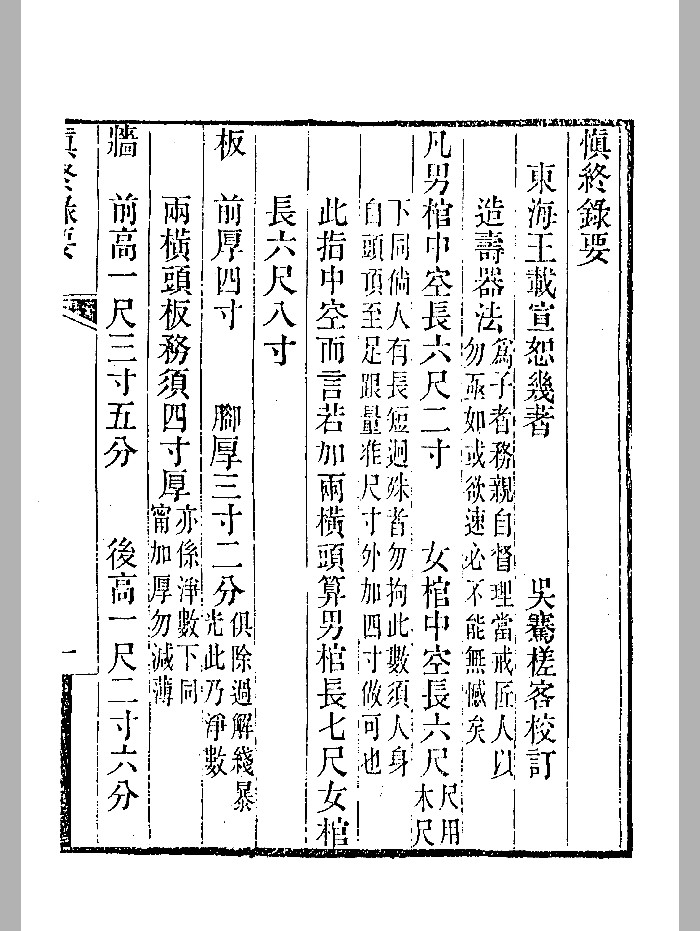 愼終錄要
東海王載宣恕幾著　吳騫槎客校訂
造壽器法爲子者務親自督理當戒匠人以
勿亟如或欲速必不能無憾矣
凡男棺中空長六尺二寸　女棺中空長六尺尺用
木尺
下同倘人有長短迥殊者勿拘此數須人身
自頭頂至足跟量准尺寸外加四寸做可也
此指中空而言若加兩橫頭算男棺長七尺女棺
長六尺八寸
板　前厚四寸　腳厚三寸二分俱除過解綫暴
光此乃淨數
兩橫頭板務須四寸厚亦係淨數下同
甯加厚勿減薄
牆　前高一尺三寸五分　後高一尺二寸六分
愼終錄要
一